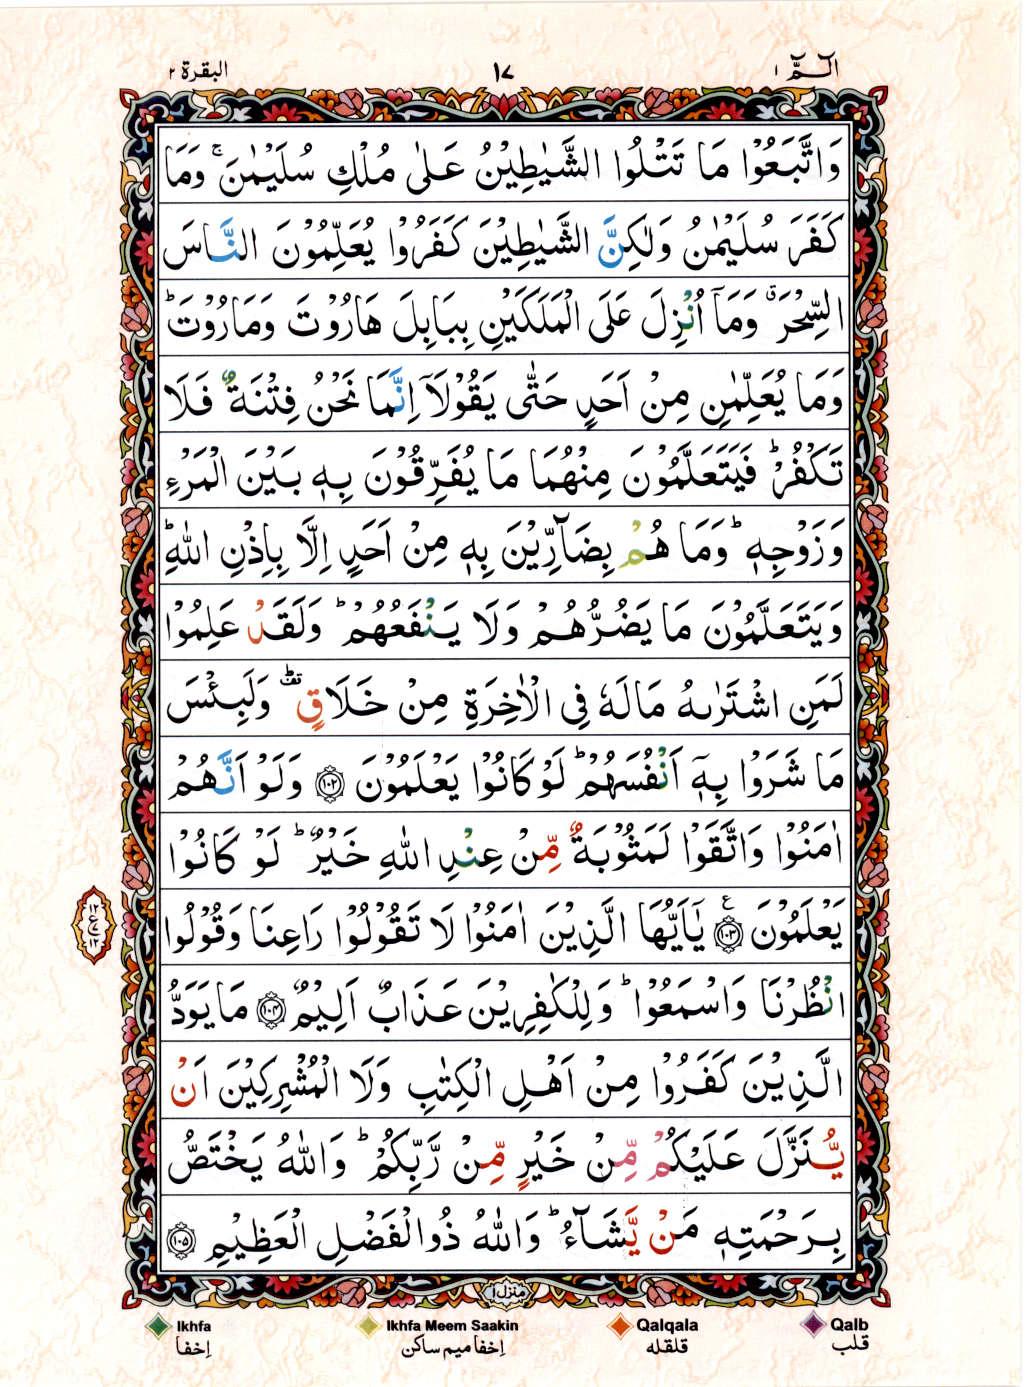 الٓـمّٓ ۱ ۱۷ البقرة ۲
وَاتَّبَعُوْا مَا تَتْلُوا الشَّيٰطِيْنُ عَلٰى مُلْكِ سُلَيْمٰنَ ۚ وَمَا
كَفَرَ سُلَيْمٰنُ وَلٰكِنَّ الشَّيٰطِيْنَ كَفَرُوْا يُعَلِّمُوْنَ النَّاسَ
السِّحْرَ ۗ وَمَآ اُنْزِلَ عَلَى الْمَلَكَيْنِ بِبَابِلَ هَارُوْتَ وَمَارُوْتَ ؕ
وَمَا يُعَلِّمٰنِ مِنْ اَحَدٍ حَتّٰى يَقُوْلَآ اِنَّمَا نَحْنُ فِتْنَةٌ فَلَا
تَكْفُرْ ؕ فَيَتَعَلَّمُوْنَ مِنْهُمَا مَا يُفَرِّقُوْنَ بِهٖ بَيْنَ الْمَرْءِ
وَزَوْجِهٖ ؕ وَمَا هُمْ بِضَآرِّيْنَ بِهٖ مِنْ اَحَدٍ اِلَّا بِاِذْنِ اللّٰهِ ؕ
وَيَتَعَلَّمُوْنَ مَا يَضُرُّهُمْ وَلَا يَنْفَعُهُمْ ؕ وَلَقَدْ عَلِمُوْا
لَمَنِ اشْتَرٰىهُ مَا لَهٗ فِى الْاٰخِرَةِ مِنْ خَلَاقٍ ؕ وَلَبِئْسَ
مَا شَرَوْا بِهٖٓ اَنْفُسَهُمْ ؕ لَوْ كَانُوْا يَعْلَمُوْنَ ۝۱۰۲ وَلَوْ اَنَّهُمْ
اٰمَنُوْا وَاتَّقَوْا لَمَثُوْبَةٌ مِّنْ عِنْدِ اللّٰهِ خَيْرٌ ؕ لَوْ كَانُوْا
يَعْلَمُوْنَ ۝۱۰۳ ع يٰٓاَيُّهَا الَّذِيْنَ اٰمَنُوْا لَا تَقُوْلُوْا رَاعِنَا وَقُوْلُوا
انْظُرْنَا وَاسْمَعُوْا ؕ وَلِلْكٰفِرِيْنَ عَذَابٌ اَلِيْمٌ ۝۱۰۴ مَا يَوَدُّ
الَّذِيْنَ كَفَرُوْا مِنْ اَهْلِ الْكِتٰبِ وَلَا الْمُشْرِكِيْنَ اَنْ
يُّنَزَّلَ عَلَيْكُمْ مِّنْ خَيْرٍ مِّنْ رَّبِّكُمْ ؕ وَاللّٰهُ يَخْتَصُّ
بِرَحْمَتِهٖ مَنْ يَّشَآءُ ؕ وَاللّٰهُ ذُو الْفَضْلِ الْعَظِيْمِ ۝۱۰۵
۱۲
ع ۷
۱۲
منزل ۱
Ikhfa Ikhfa Meem Saakin Qalqala Qalb
اِخفا اِخفا ميم ساكن قلقله قلب